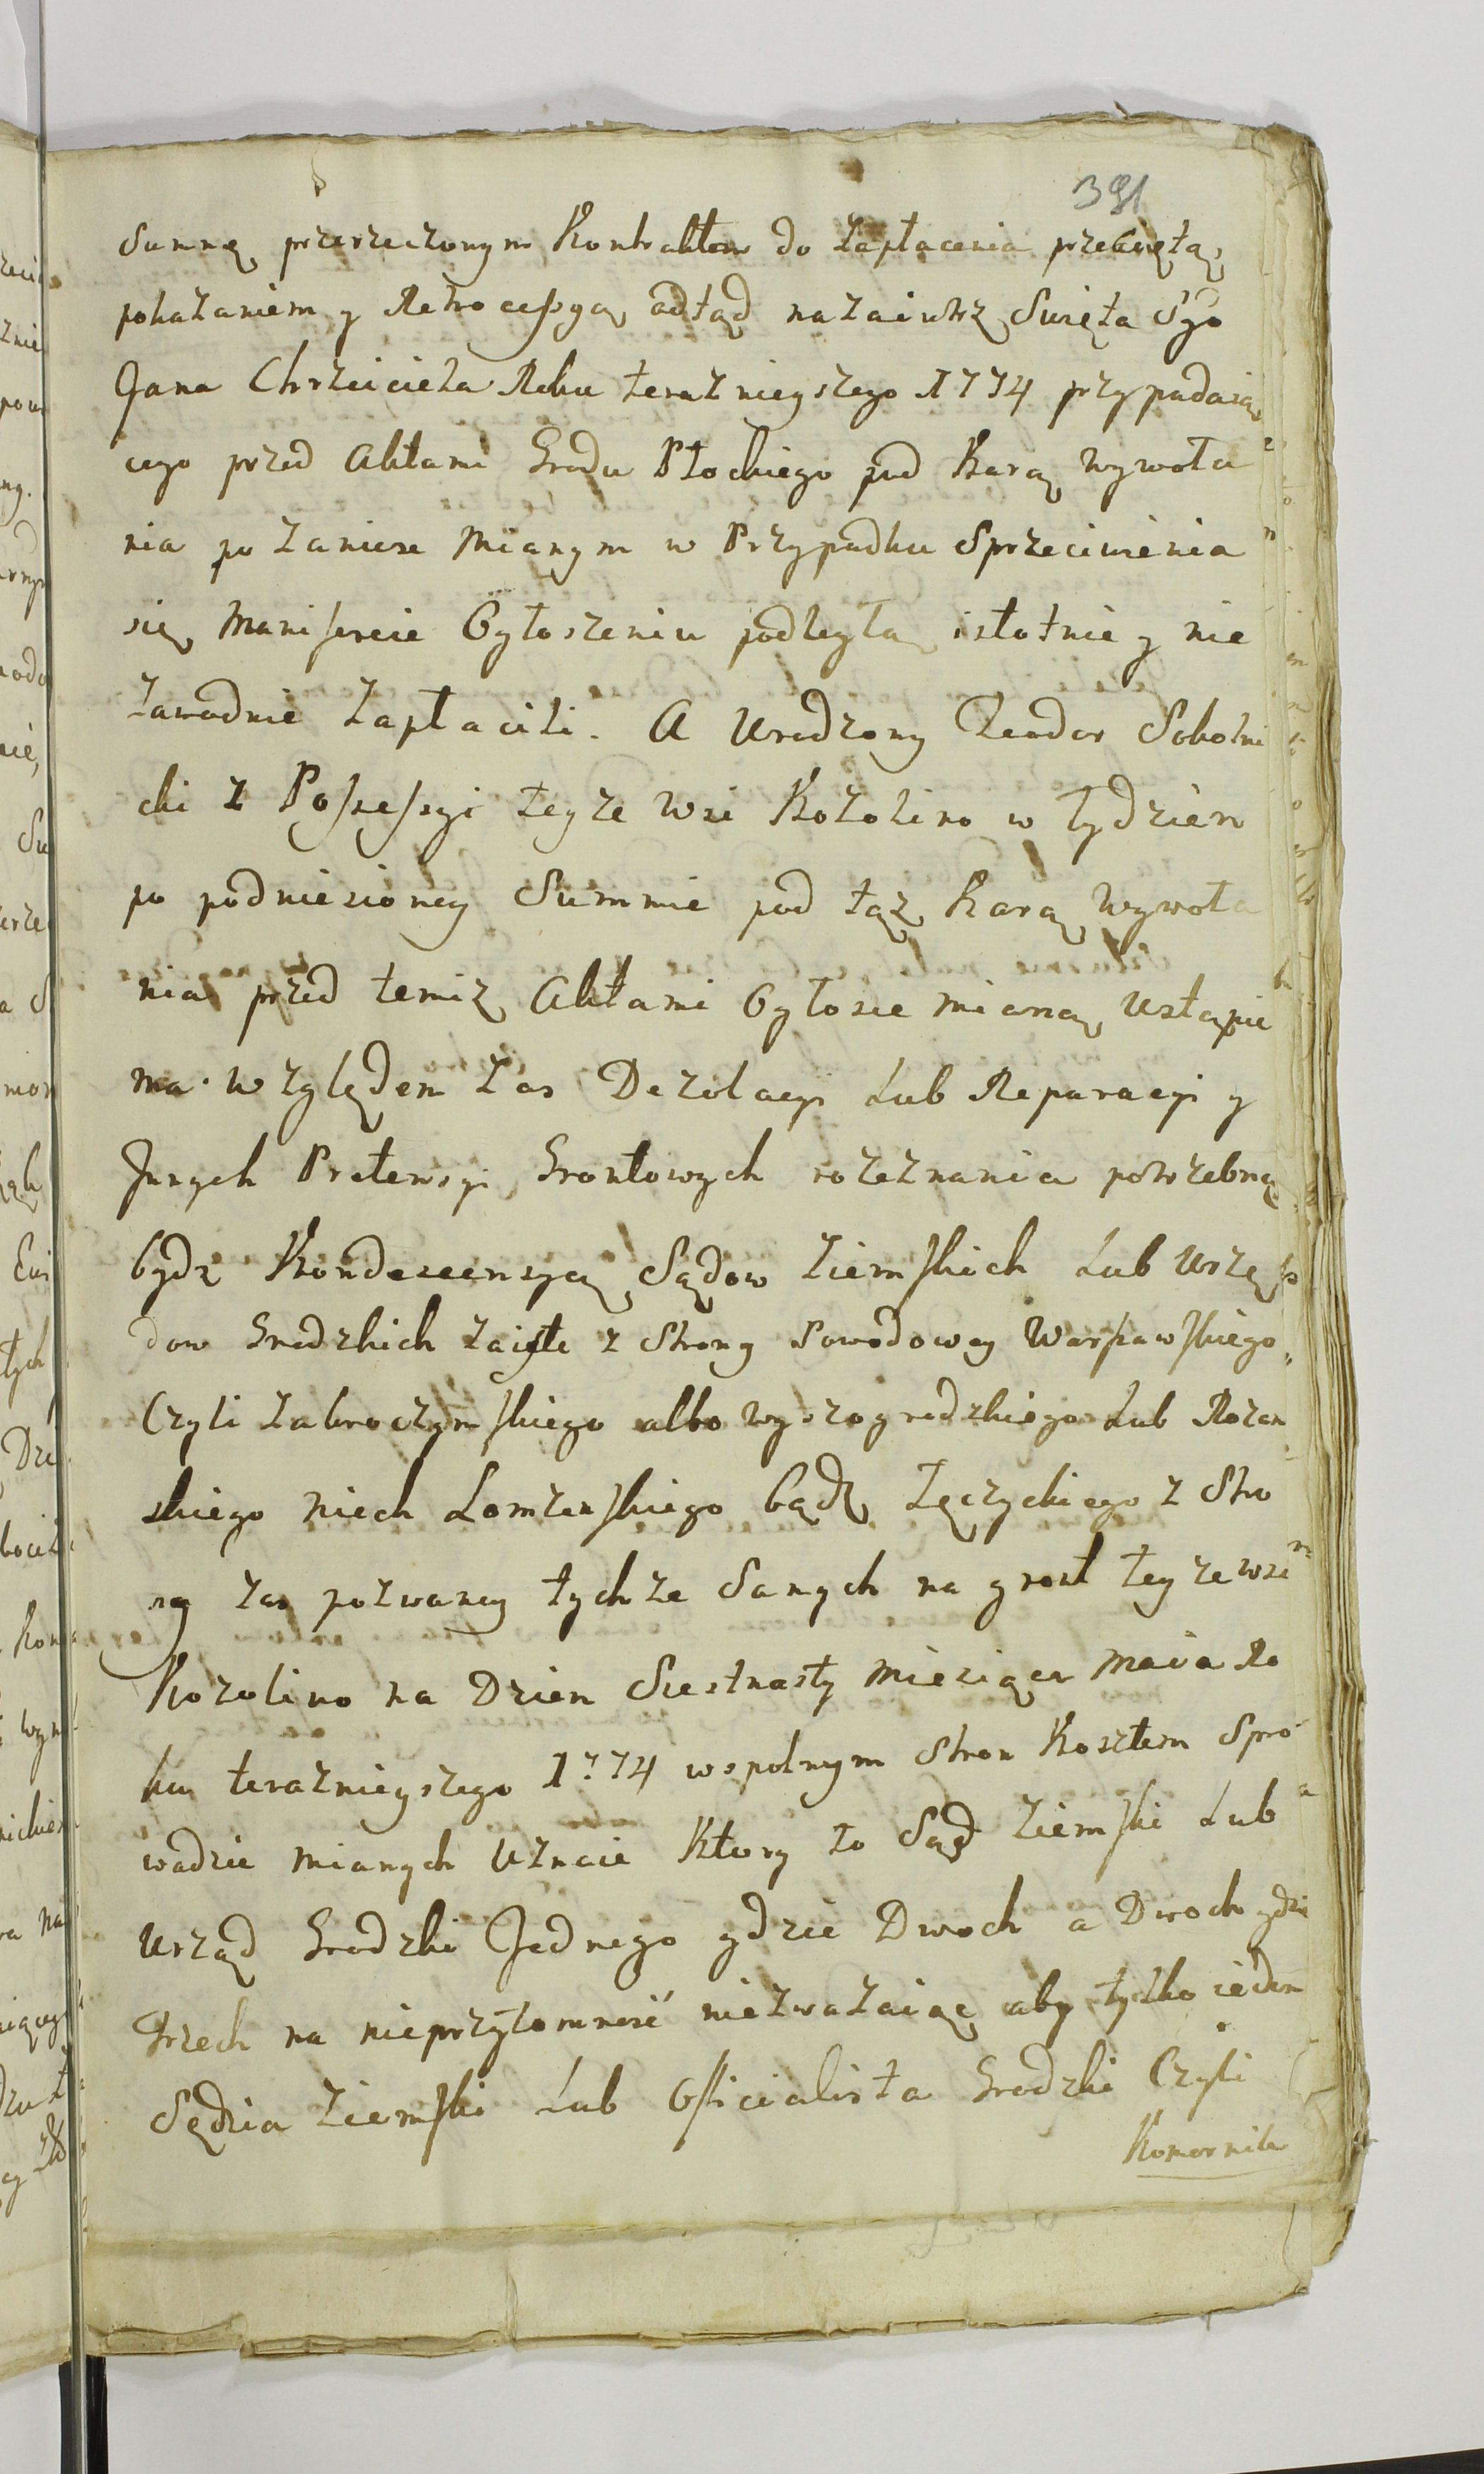 391
Summę przerzeczonym Kontraktem do zapłacenia przeciętą,
pokazaniem y Retrocessyą odtąd nazaiutrz Swięta Sgo
Jana Chrzciciela Roku teraznieyszego 1774 przypadaią
cego przed Aktami Grodu Płockiego pod Karą wywoła
nia po zaniese mianym w Przypadku Sprzeciwienia
się Manifescie Ogłoszeniu podległą istotnie y nie
zawodnie zapłacili. A Urodzony Teodor Sokolni
cki z Possessyi teyze wsi Kozolino w tydzien
po podniesioney Summie pod tąz Karą wywoła
nia przed temiz Aktami Ogłosic mianą Ustąpic
ma. względem zas Dezolacyi Lub Reparacyi y
Jnnych Pretensyi Grontowych rozeznania potrzebną
bydz Kondescensyą Sądow Ziemskich Lub Urzę
dow Grodzkich zaięte z Strony Powodowey Warszawskiego
Czyli Zakroczymskiego albo wyszogrodzkiego Lub Rozan
skiego niech Łomzenskiego bądz Łęczyckiego z Stro
ny zas pozwaney tychze Samych na gront teyze wsi
Kozolino na Dzien Szestnasty Miesiąca Maia Ro
ku teraznieyszego 1774 wspolnym Stron Kosztem Spro
wadzic mianych Uznaie Ktory to Sąd Ziemski Lub
Urząd Grodzki Jednego gdzie Dwoch a Dwoch gdzie
Trzech na nieprzytomność niezwazaiąc aby tylko ieden
Sędzia Ziemski Lub Officialista Grodzki Czyli
Komornik